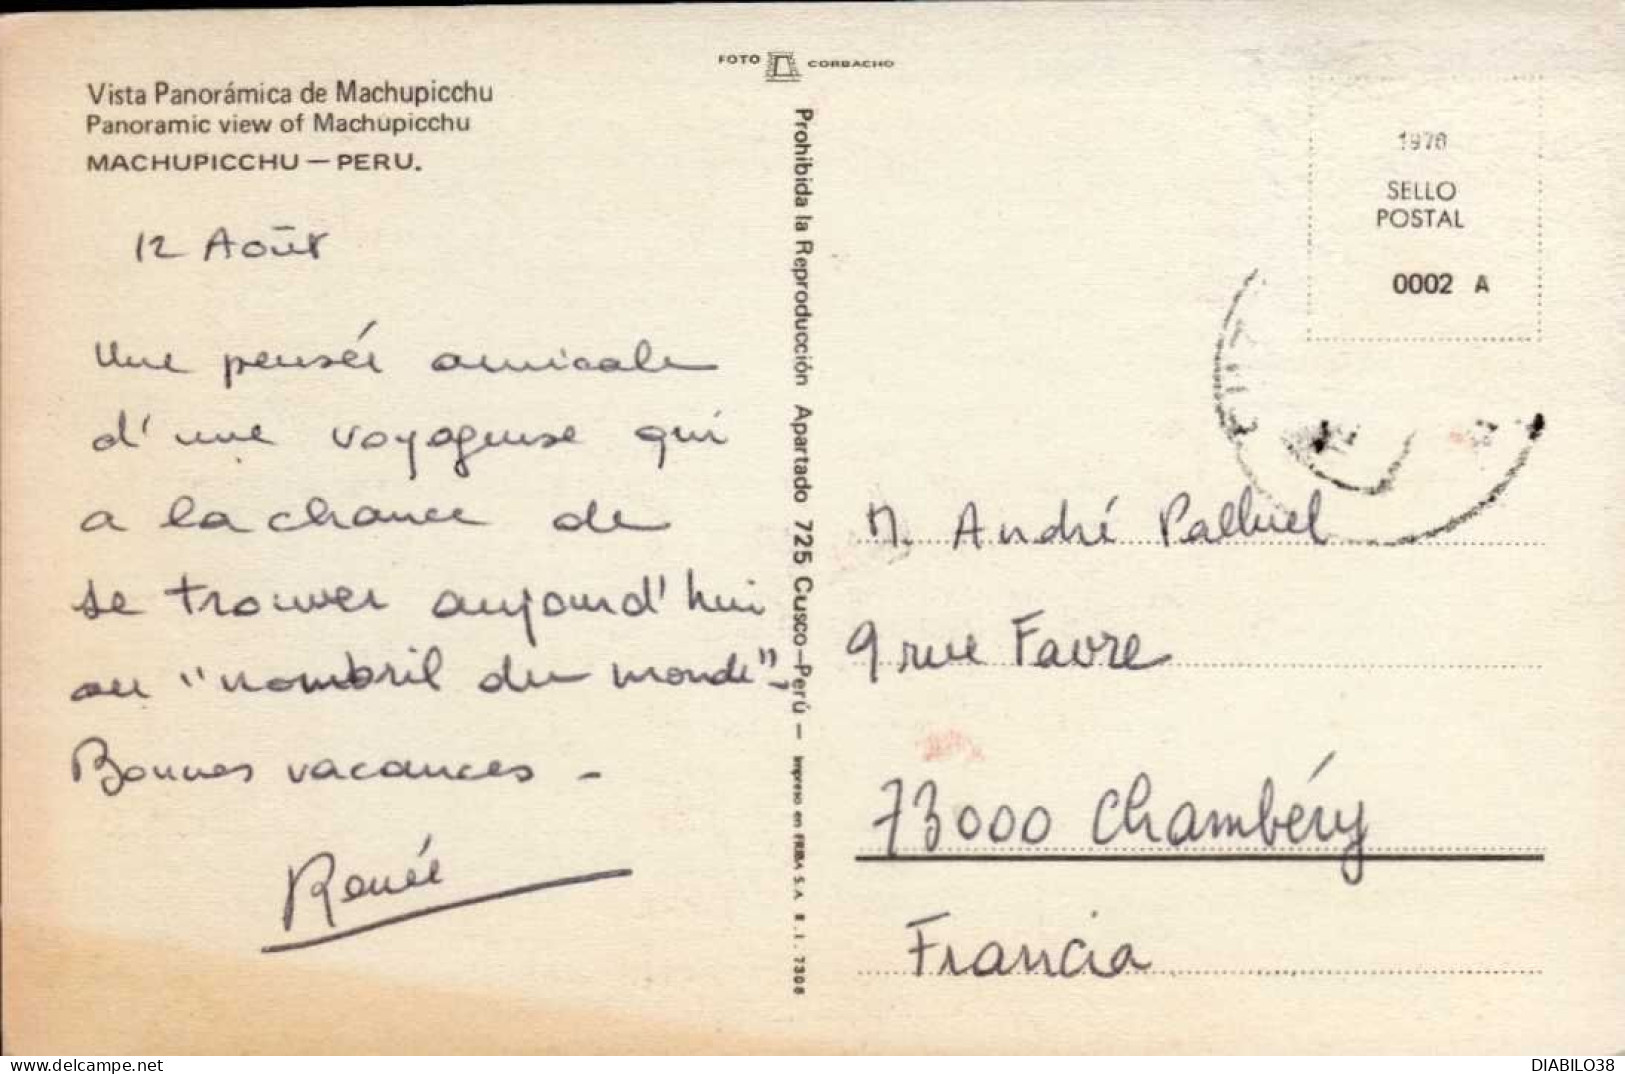 FOTO CORBACHO
Vista Panorámica de Machupicchu
Panoramic view of Machupicchu
MACHUPICCHU — PERU.
12 Août
Une pensée amicale
d'une voyageuse qui
a la chance de
se trouver aujourd'hui
au "nombril du monde".
Bonnes vacances -
Renée
Prohibida la Reproducción Apartado 725 Cusco—Perú — Impreso en
1978
SELLO
POSTAL
0002 A
M. André Palluel
9 rue Favre
73000 Chambéry
Francia
DIABILO38